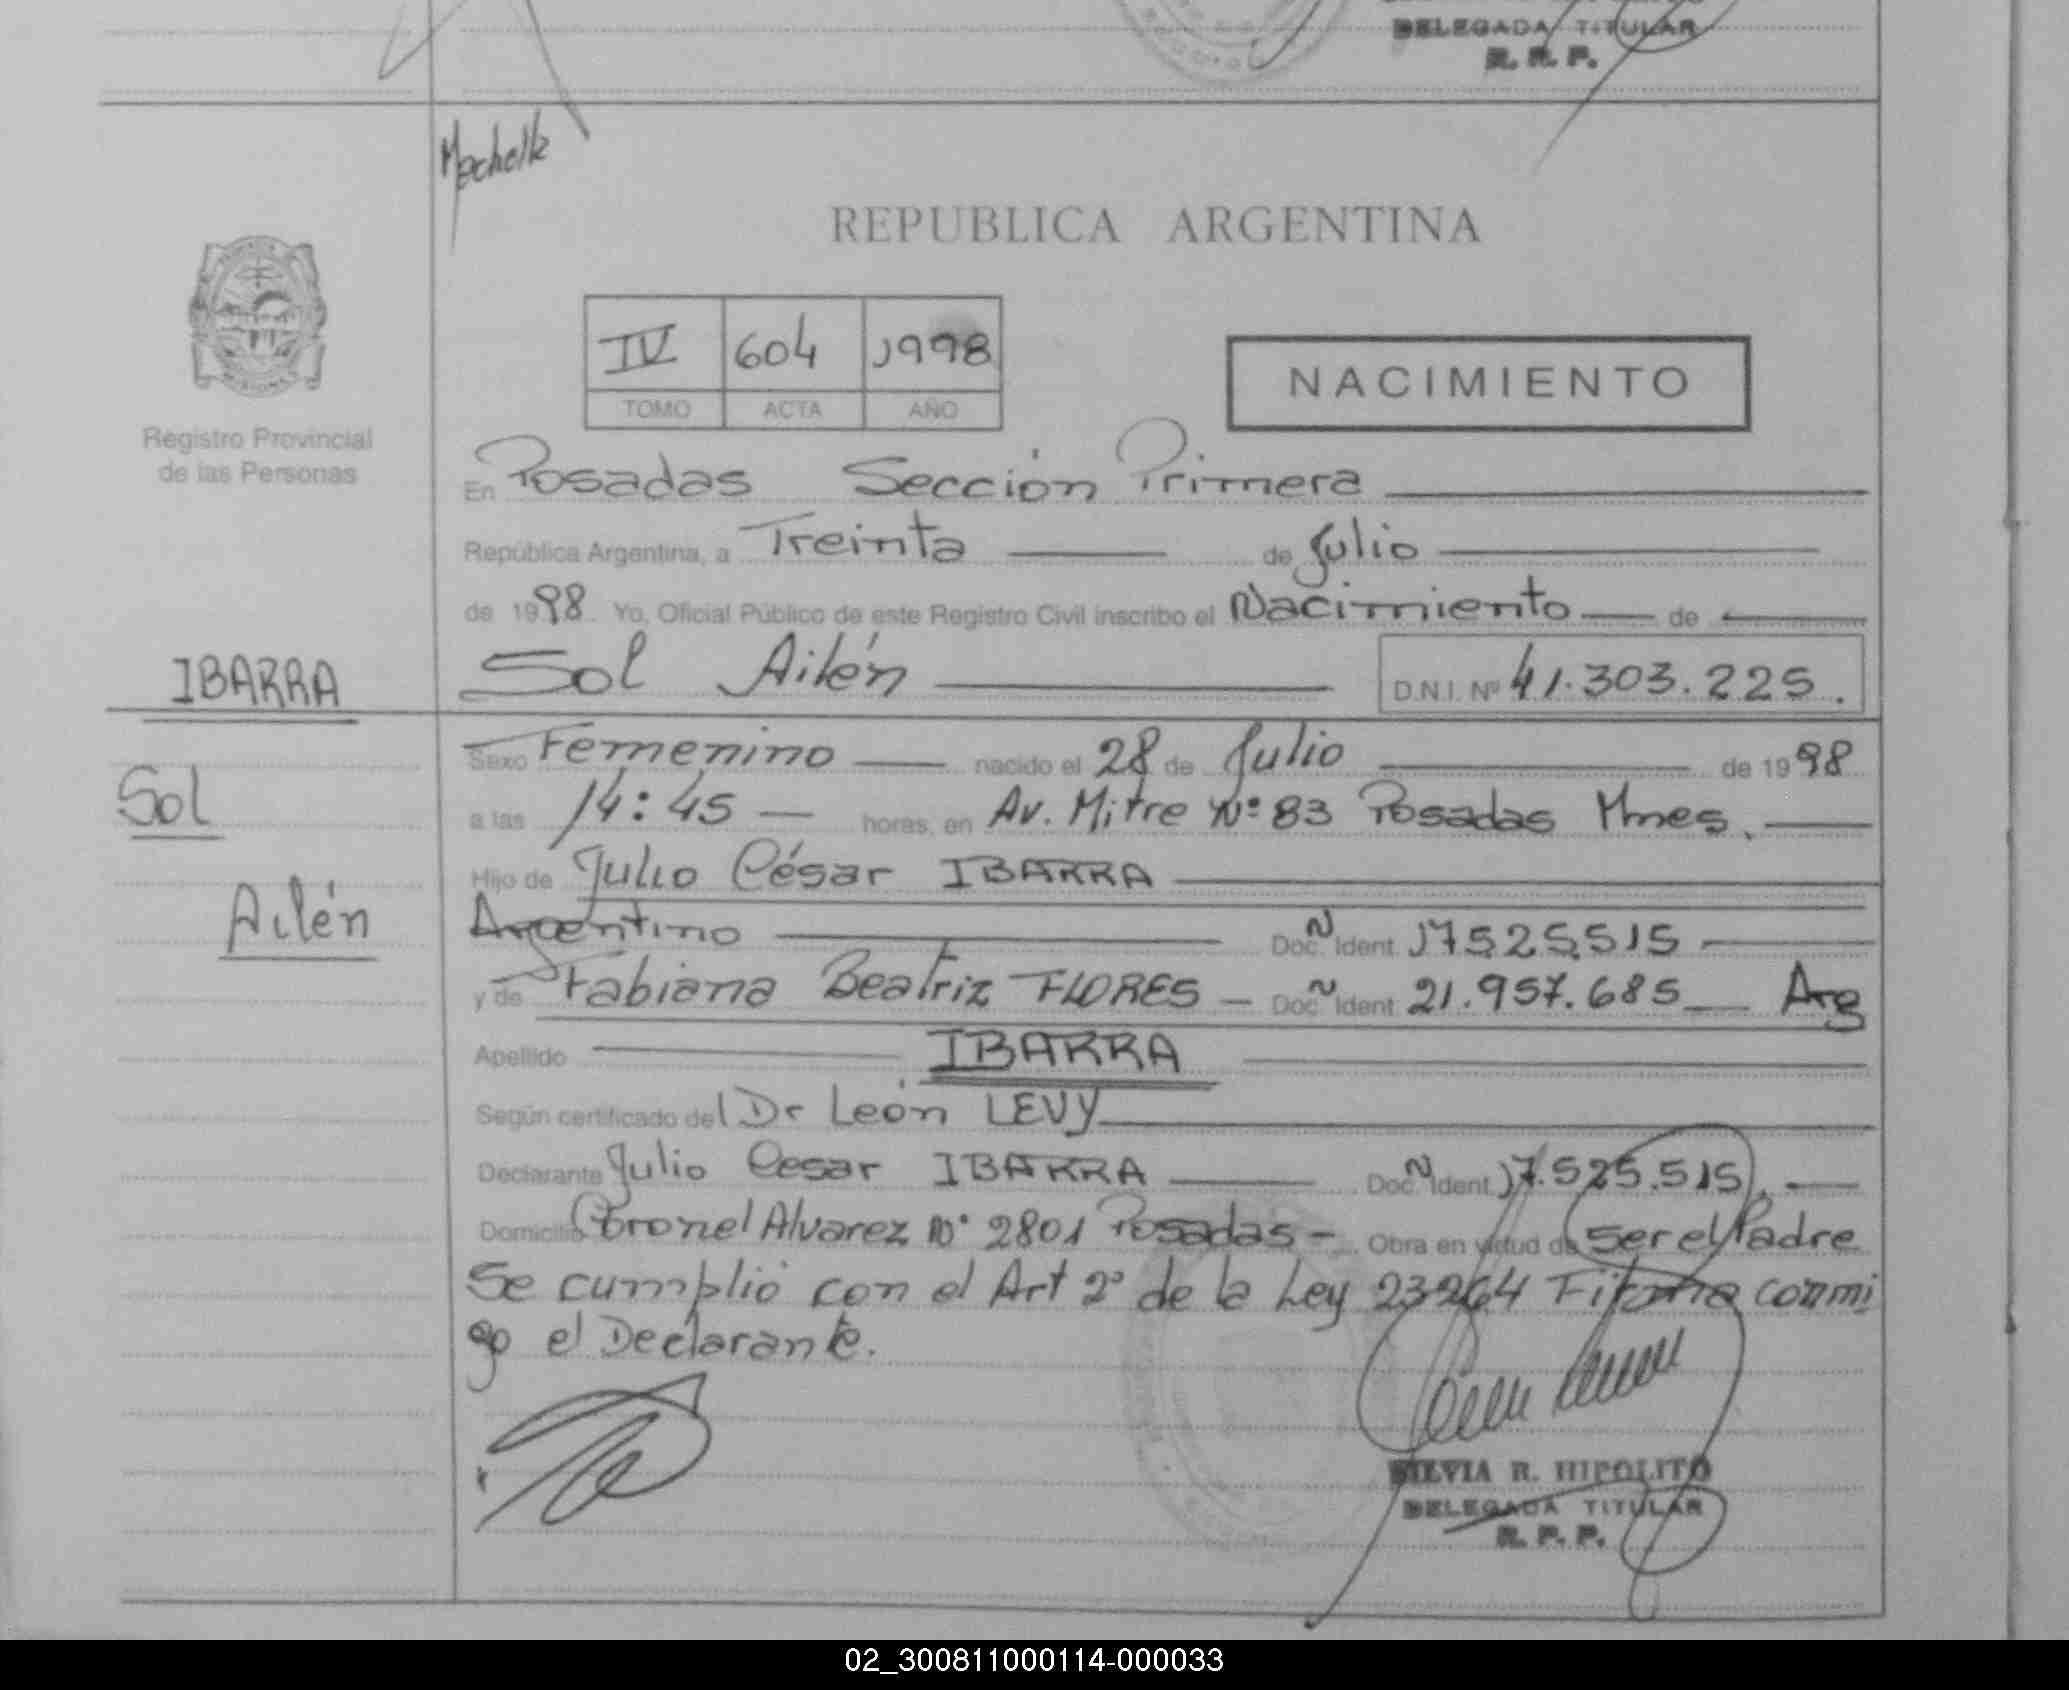 DELEGADA TITULAR
R. P. P.
REPUBLICA ARGENTINA
IV 604 1998
TOMO ACTA AÑO
NACIMIENTO
Registro Provincial
de las Personas
En Posadas Sección Primera
República Argentina, a Treinta de Julio
de 1998 Yo, Oficial Público de este Registro Civil inscribo el Nacimiento de
IBARRA
Sol Ailén D.N.I. Nº 41.303.225.
Sexo Femenino nacido el 28 de Julio de 1998
Sol
a las 14:45 horas, en Av. Mitre Nº 83 Posadas Mnes.
Hijo de Julio César IBARRA
Ailén
Argentino Doc. Ident. 17525515
y de Fabiana Beatriz FLORES - Doc. Ident. 21.957.685 Arg
Apellido IBARRA
Según certificado del Dr León LEVY
Declarante Julio Cesar IBARRA Doc. Ident. 17.525.515.
Domicilio Coronel Alvarez Nº 2801 Posadas - Obra en virtud de ser el Padre
Se cumplió con el Art 2º de la Ley 23264 Firma conmi
go el Declarante.
SILVIA R. HIPOLITO
DELEGADA TITULAR
R. P. P.
02_300811000114-000033